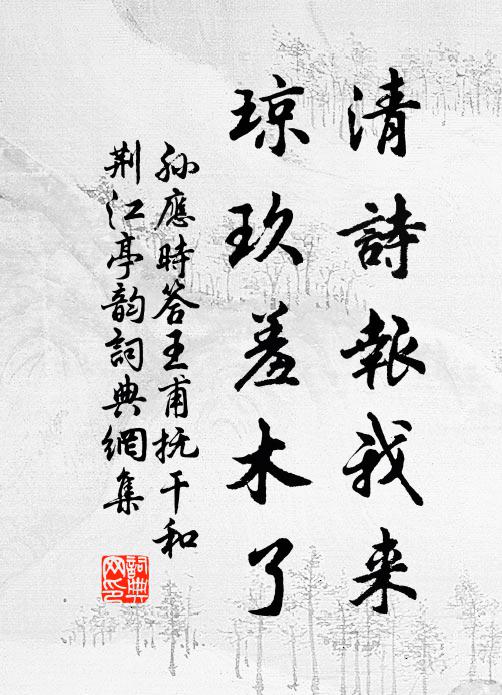 清詩報我来
琼玖羞木了
孙應時答王甫抚干和
荆江亭韵詞典網集
詞典網印